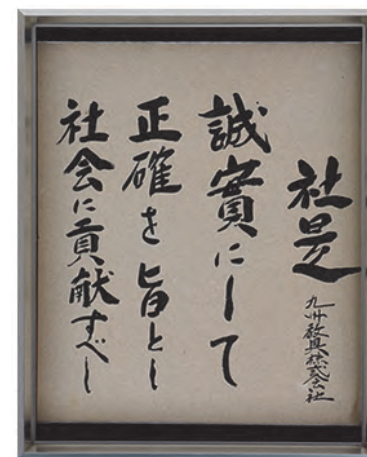 社是
九州教具株式会社
誠實にして
正確を旨とし
社会に貢献すべし